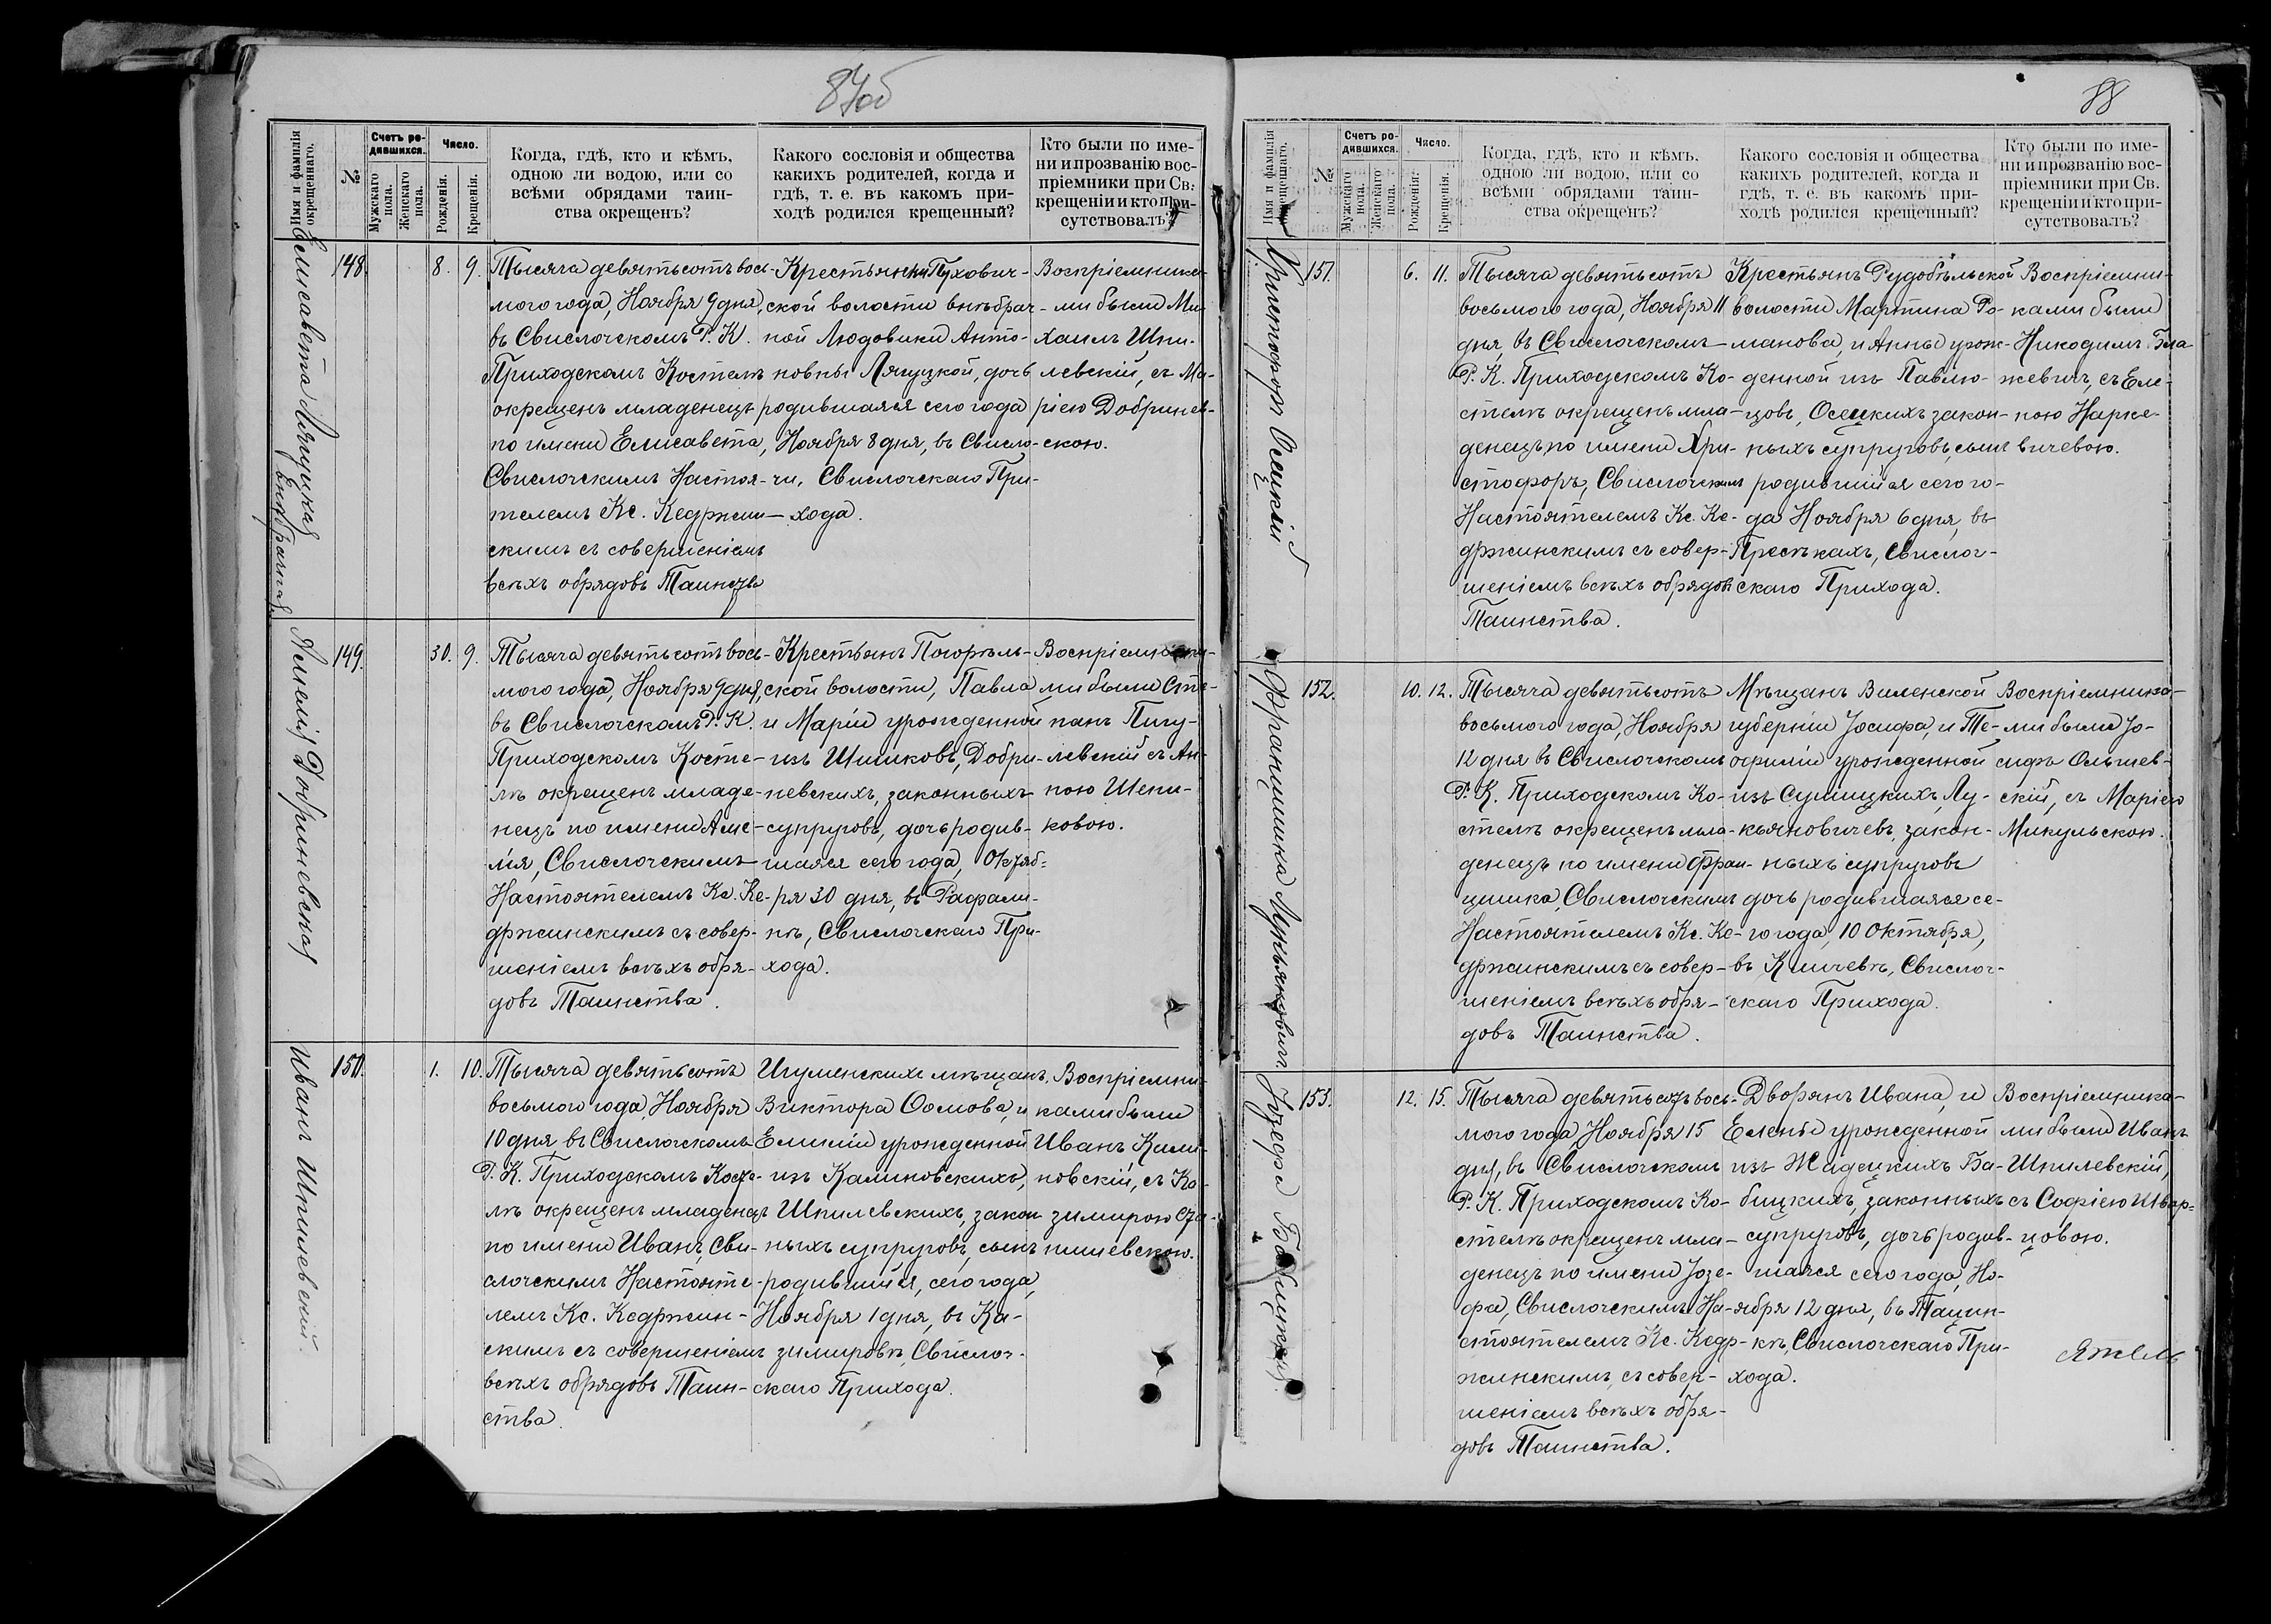 87об
Имя и фамилія окрещеннаго.
№
Счетъ родившихся.
Мужскаго пола.
Женскаго пола.
Число.
Рожденія.
Крещенія.
Когда, гдѣ, кто и кѣмъ,
одною ли водою, или со
всѣми обрядами таин-
ства окрещенъ?
Какого сословія и общества
какихъ родителей, когда и
гдѣ, т. е. въ какомъ при-
ходѣ родился крещенный?
Кто были по име-
ни и прозванію вос-
пріемники при Св.
крещеніи и кто при-
сутствовалъ?
Елисавета Лягуцкая
внѣбрачная
148.
8. 9.
Тысяча девятьсотъ вось-
мого года, Ноября 9 дня,
въ Свислочскомъ Р. К.
Приходскомъ Костелѣ
окрещенъ младенецъ
по имени Елисавета,
Свислочскимъ Настоя-
телемъ Кс. Кедржин-
скимъ съ совершеніемъ
всѣхъ обрядовъ Таинства
Крестьянки Пухович-
ской волости внѣбрач-
ной Людовики Анто-
новны Лягуцкой, дочь
родившаяся сего года
Ноября 8 дня, въ Свисло-
чи, Свислочскаго При-
хода.
Воспріемника-
ми были Ми-
хаилъ Шпи-
левскій, съ Ма-
ріею Добринев-
скою.
Амелія Добриневская
149.
30. 9.
Тысяча девятьсотъ вось-
мого года, Ноября 9 дня,
въ Свислочскомъ Р. К.
Приходскомъ Косте-
лѣ окрещенъ младе-
нецъ по имени Аме-
лія, Свислочскимъ
Настоятелемъ Кс. Ке-
држинскимъ съ совер-
шеніемъ всѣхъ обря-
довъ Таинства.
Крестьянъ Погорѣль-
ской волости, Павла
и Маріи урожденной
изъ Шишковъ, Добри-
невскихъ, законныхъ
супруговъ, дочь родив-
шаяся сего года, Октяб-
ря 30 дня, въ Рафали-
нѣ, Свислочскаго При-
хода.
Воспріемника-
ми были Сте-
панъ Пигу-
левскій съ Ан-
ною Шепи-
ковою.
Иванъ Шпилевскій.
150.
1. 10.
Тысяча девятьсотъ
восьмого года, Ноября
10 дня въ Свислочскомъ
Р. К. Приходскомъ Косте-
лѣ окрещенъ младенецъ
по имени Иванъ, Сви-
слочскимъ Настояте-
лемъ Кс. Кедржин-
скимъ съ совершеніемъ
всѣхъ обрядовъ Таин-
ства.
Игуменскихъ мѣщанъ,
Виктора Ѳомова, и
Емиліи урожденной
изъ Калиновскихъ,
Шпилевскихъ, закон-
ныхъ супруговъ, сынъ
родившійся, сего года,
Ноября 1 дня, въ Ка-
зимировѣ, Свислоч-
скаго Прихода.
Воспріемни-
ками были
Иванъ Кали-
новскій, съ Ка-
зимирою Ста-
нишевскою.
88
Имя и фамилія окрещеннаго.
№
Счетъ родившихся.
Мужскаго пола.
Женскаго пола.
Число.
Рожденія.
Крещенія.
Когда, гдѣ, кто и кѣмъ,
одною ли водою, или со
всѣми обрядами таин-
ства окрещенъ?
Какого сословія и общества
какихъ родителей, когда и
гдѣ, т. е. въ какомъ при-
ходѣ родился крещенный?
Кто были по име-
ни и прозванію вос-
пріемники при Св.
крещеніи и кто при-
сутствовалъ?
Христофоръ Осецкій
151.
6. 11.
Тысяча девятьсотъ
восьмого года, Ноября 11
дня, въ Свислочскомъ
Р. К. Приходскомъ Ко-
стелѣ окрещенъ мла-
денецъ по имени Хри-
стофоръ, Свислочскимъ
Настоятелемъ Кс. Ке-
држинскимъ съ совер-
шеніемъ всѣхъ обрядовъ
Таинства.
Крестьянъ Рудобѣльской
волости Мартина Ро-
манова, и Анны урож-
денной изъ Павлю-
цовъ, Осецкихъ закон-
ныхъ супруговъ, сынъ
родившійся сего го-
да Ноября 6 дня, въ
Просѣкахъ, Свислоч-
скаго Прихода.
Воспріемни-
ками были
Никодимъ Бла-
жевичъ, съ Еле-
ною Нарке-
вичевою.
Францишка Лукьяновичъ.
152.
10. 12.
Тысяча девятьсотъ
восьмого года, Ноября
12 дня въ Свислочскомъ
Р. К. Приходскомъ Ко-
стелѣ окрещенъ мла-
денецъ по имени Фран-
цишка, Свислочскимъ
Настоятелемъ Кс. Ке-
држинскимъ съ совер-
шеніемъ всѣхъ обря-
довъ Таинства.
Мѣщанъ Виленской
губерніи Іосифа, и Те-
офиліи урожденной
изъ Сулицкихъ, Лу-
кьяновичевъ, закон-
ныхъ супруговъ
дочь родившаяся се-
го года, 10 Октября,
въ Кличевѣ, Свислоч-
скаго Прихода.
Воспріемника-
ми были Іо-
сифъ Ольшев-
скій, съ Маріею
Микульскою.
Іозефа Бабицкая
153.
12. 15.
Тысяча девятьсотъ вось-
мого года Ноября 15
дня, въ Свислочскомъ
Р. К. Приходскомъ Ко-
стелѣ окрещенъ мла-
денецъ по имени Іозе-
фа, Свислочскимъ На-
стоятелемъ Кс. Кедр-
жинскимъ, съ совер-
шеніемъ всѣхъ обря-
довъ Таинства.
Дворянъ Ивана, и
Елены урожденной
изъ Жадецкихъ Ба-
бицкихъ, законныхъ
супруговъ, дочь родив-
шаяся сего года, Но-
ября 12 дня, въ Тацин-
кѣ, Свислочскаго При-
хода.
Воспріемника-
ми были Иванъ
Шпилевскій,
съ Софіею Швар-
цовою.